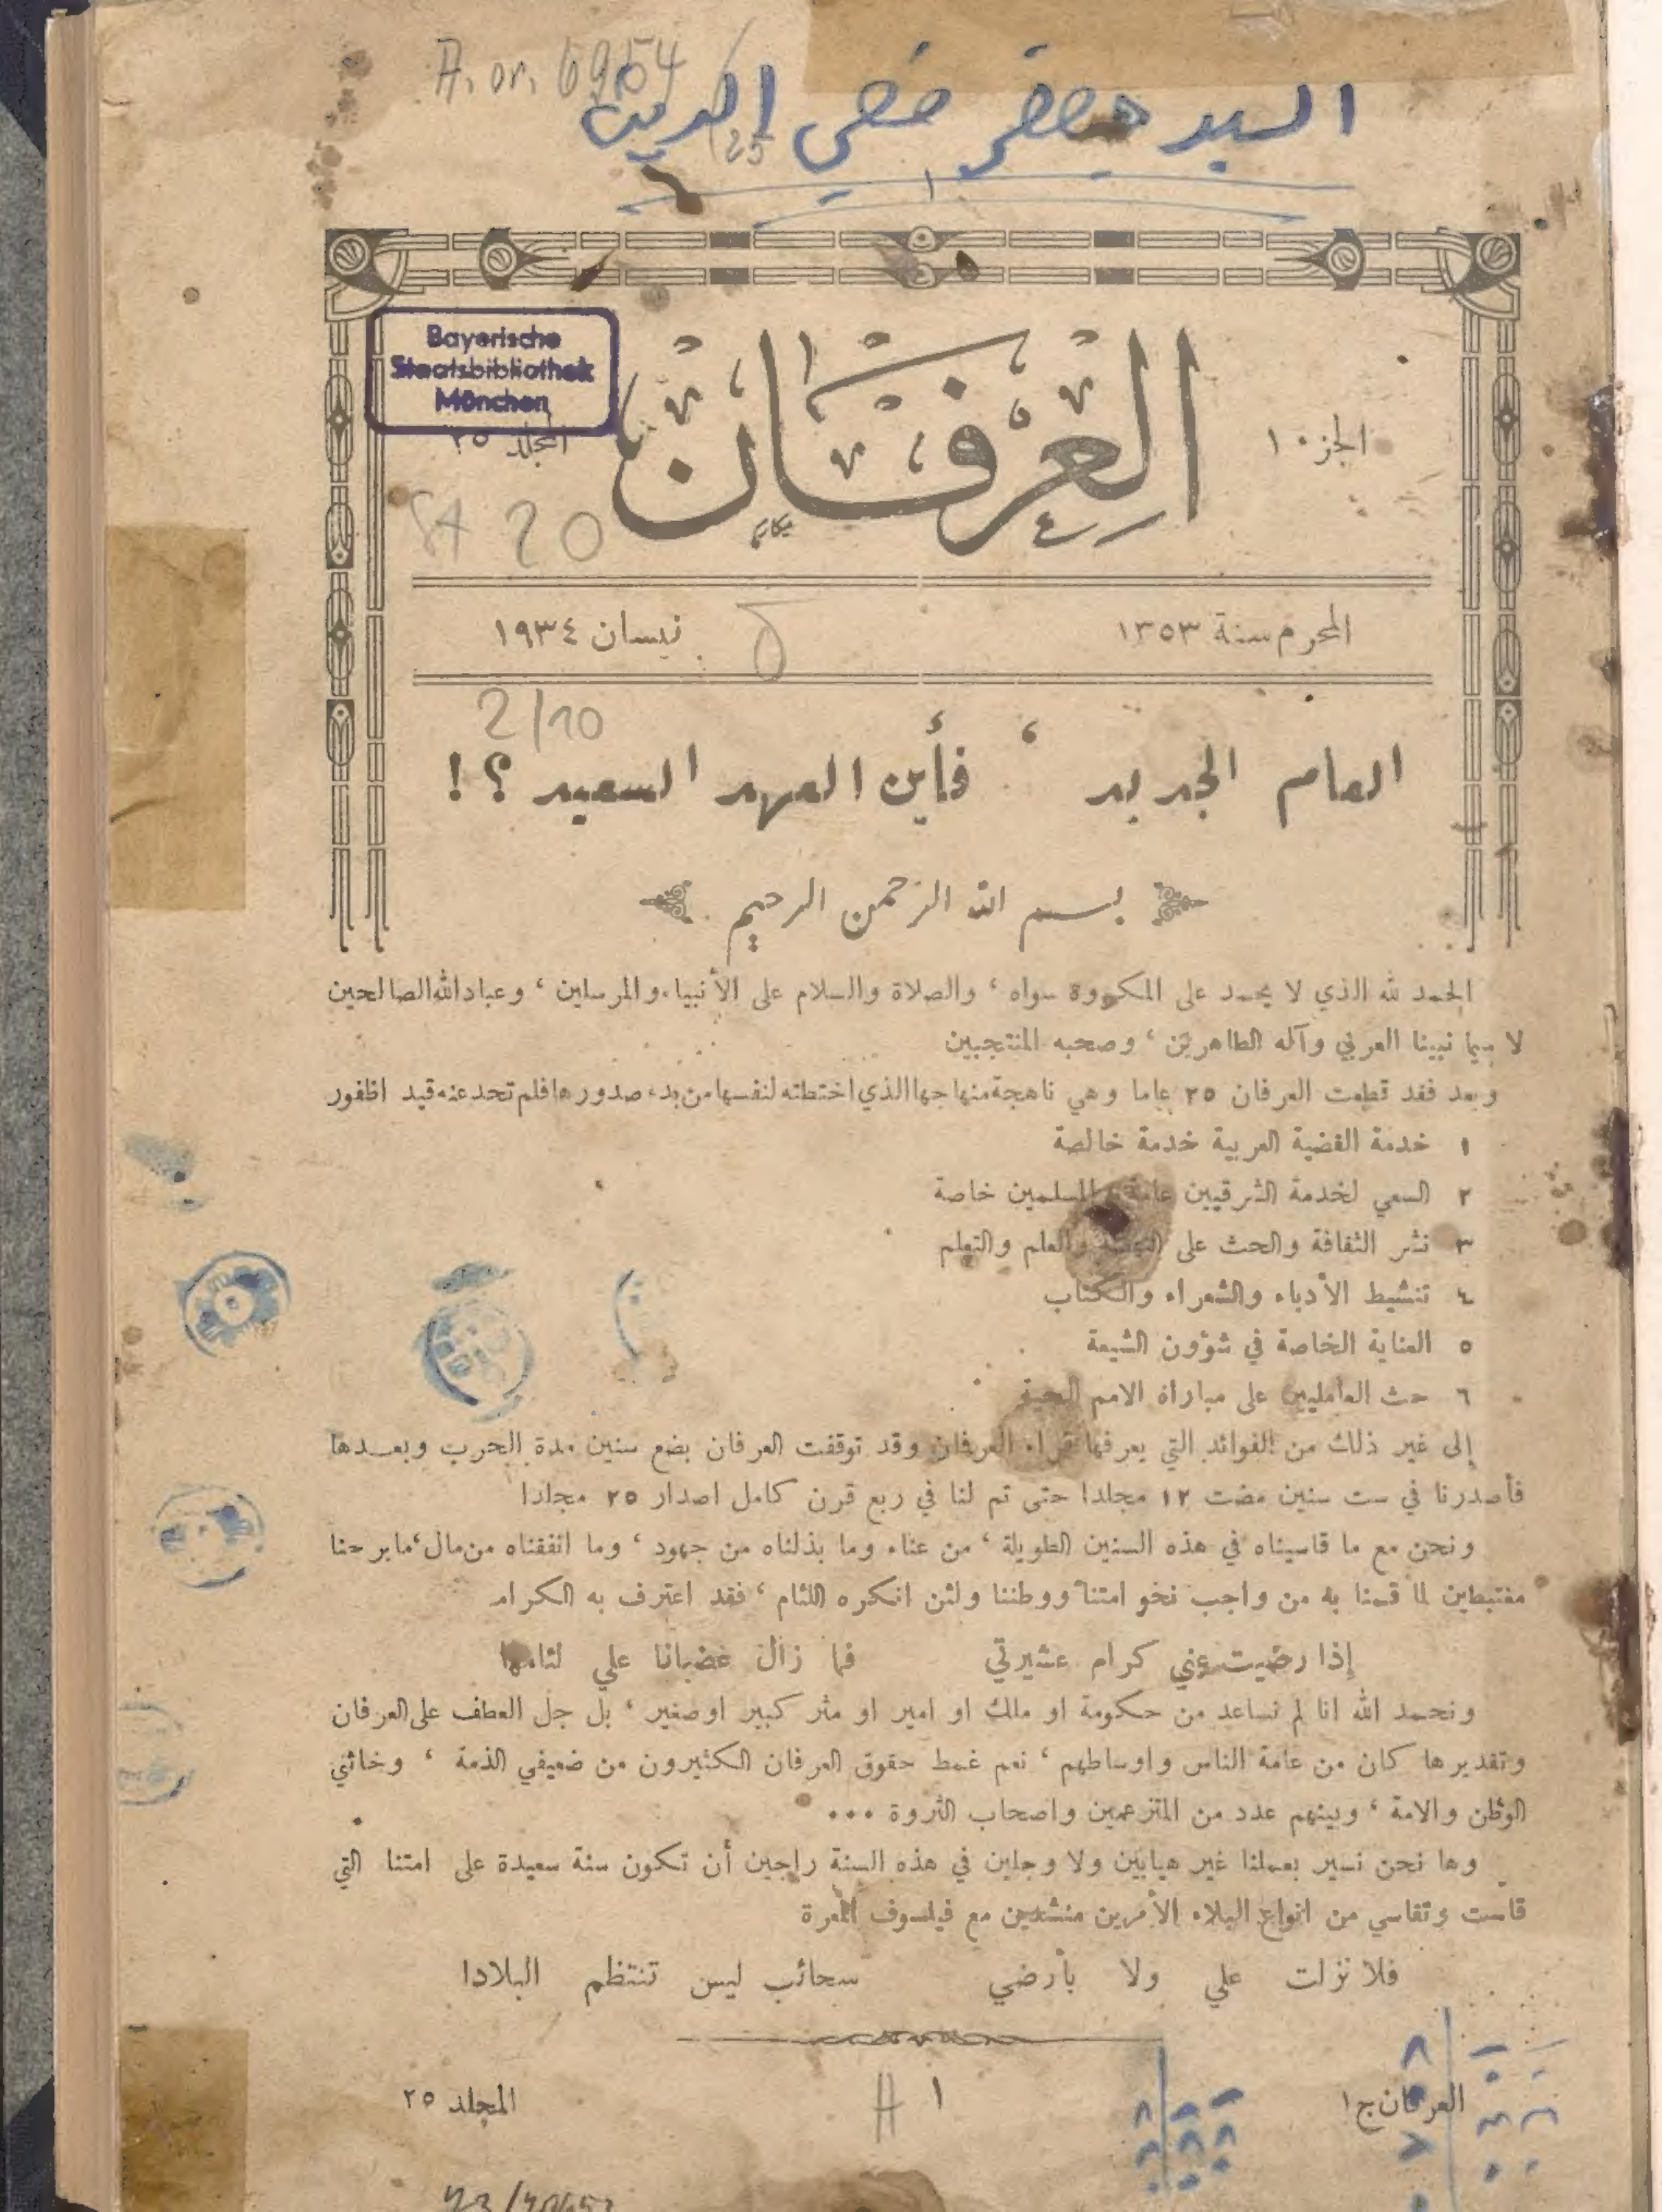 A. or. 6954
25
السيد
Bayerische
Staatsbibliothek
München
الجزء ١
العرفان
المجلد ٢٥
مكارم
St 20
المحرم سنة ١٣٥٣
نيسان ١٩٣٤
2/10
العام الجديد ، فأين العهد السعيد ؟!
بسم الله الرحمن الرحيم
الحمد لله الذي لا يحمد على المكروه سواه ، والصلاة والسلام على الأنبياء والمرسلين ، وعباد الله الصالحين
لا سيما نبينا العربي وآله الطاهرين ، وصحبه المنتجبين
وبعد فقد قطعت العرفان ٢٥ عاما وهي ناهجة منهاجها الذي اختطته لنفسها من بدء صدورها فلم تحد عنه قيد اظفور
١ خدمة القضية العربية خدمة خالصة
٢ السعي لخدمة الشرقيين عامة والمسلمين خاصة
٣ نشر الثقافة والحث على والعلم والتعلم
٤ تنشيط الأدباء والشعراء والكتاب
٥ العناية الخاصة في شؤون الشيعة
٦ حث العامليين على مباراة الامم الحية
إلى غير ذلك من الفوائد التي يعرفها قراء العرفان وقد توقفت العرفان بضع سنين مدة الحرب وبعدها
فأصدرنا في ست سنين مضت ١٢ مجلدا حتى تم لنا في ربع قرن كامل اصدار ٢٥ مجلدا
ونحن مع ما قاسيناه في هذه السنين الطويلة ، من عناء وما بذلناه من جهود ، وما انفقناه من مال ، ما برحنا
مغتبطين لما قمنا به من واجب نحو امتنا ووطننا ولئن انكره اللئام ، فقد اعترف به الكرام
إذا رضيت عني كرام عشيرتي فما زال غضبانا علي لئامها
ونحمد الله انا لم نساعد من حكومة او ملك او امير او مثر كبير او صغير ، بل جل العطف على العرفان
وتقديرها كان من عامة الناس واوساطهم ، نعم غمط حقوق العرفان الكثيرون من ضعيفي الذمة ، وخائني
الوطن والامة ، وبينهم عدد من المتزعمين واصحاب الثروة ...
وها نحن نسير بعملنا غير هيابين ولا وجلين في هذه السنة راجين أن تكون سنة سعيدة على امتنا التي
قاست وتقاسي من انواع البلاء الأمرين منشدين مع فيلسوف المعرة
فلا نزلت علي ولا بأرضي سحائب ليس تنتظم البلادا
العرفان ج ١
١
المجلد ٢٥